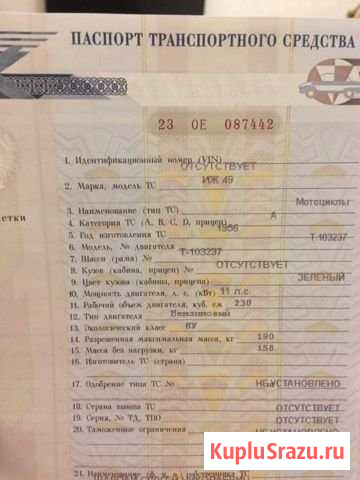 ПАСПОРТ ТРАНСПОРТНОГО СРЕДСТВА
23 ОЕ 087442
1. Идентификационный номер (VIN) ОТСУТСТВУЕТ
2. Марка, модель ТС ИЖ 49
3. Наименование (тип ТС) Мотоциклы
4. Категория ТС (А, В, С, D, прицеп) А
5. Год изготовления ТС 1956
6. Модель, № двигателя Т-103237
7. Шасси (рама) № Т-103237
8. Кузов (кабина, прицеп) № ОТСУТСТВУЕТ
9. Цвет кузова (кабины, прицепа) ЗЕЛЕНЫЙ
10. Мощность двигателя, л. с. (кВт) 11 л.с.
11. Рабочий объем двигателя, куб. см 230
12. Тип двигателя Бензиновый
13. Экологический класс
14. Разрешенная максимальная масса, кг 190
15. Масса без нагрузки, кг 158
16. Изготовитель ТС (страна)
17. Одобрение типа ТС № НЕ УСТАНОВЛЕНО
18. Страна вывоза ТС ОТСУТСТВУЕТ
19. Серия, № ТД, ТПО ОТСУТСТВУЕТ
20. Таможенные ограничения НЕ УСТАНОВЛЕНО
21. Наименование
KupluSrazu.ru